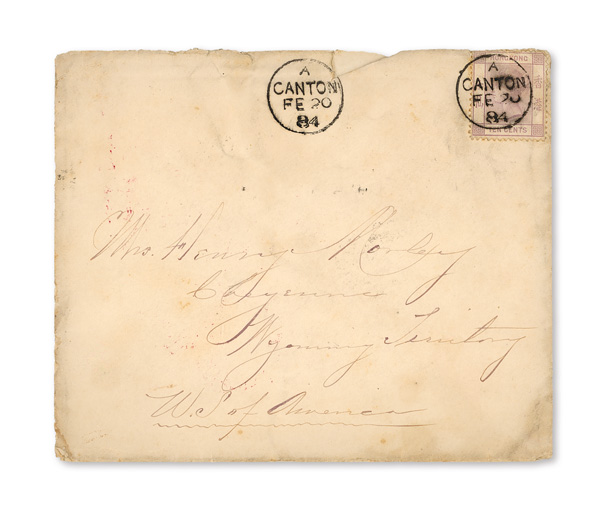 A
CANTON
FE 20
84
HONG KONG
A
CANTON
FE 20
84
TEN CENTS
Mrs. Henry Morley
Cheyenne
Wyoming Territory
U.S of America